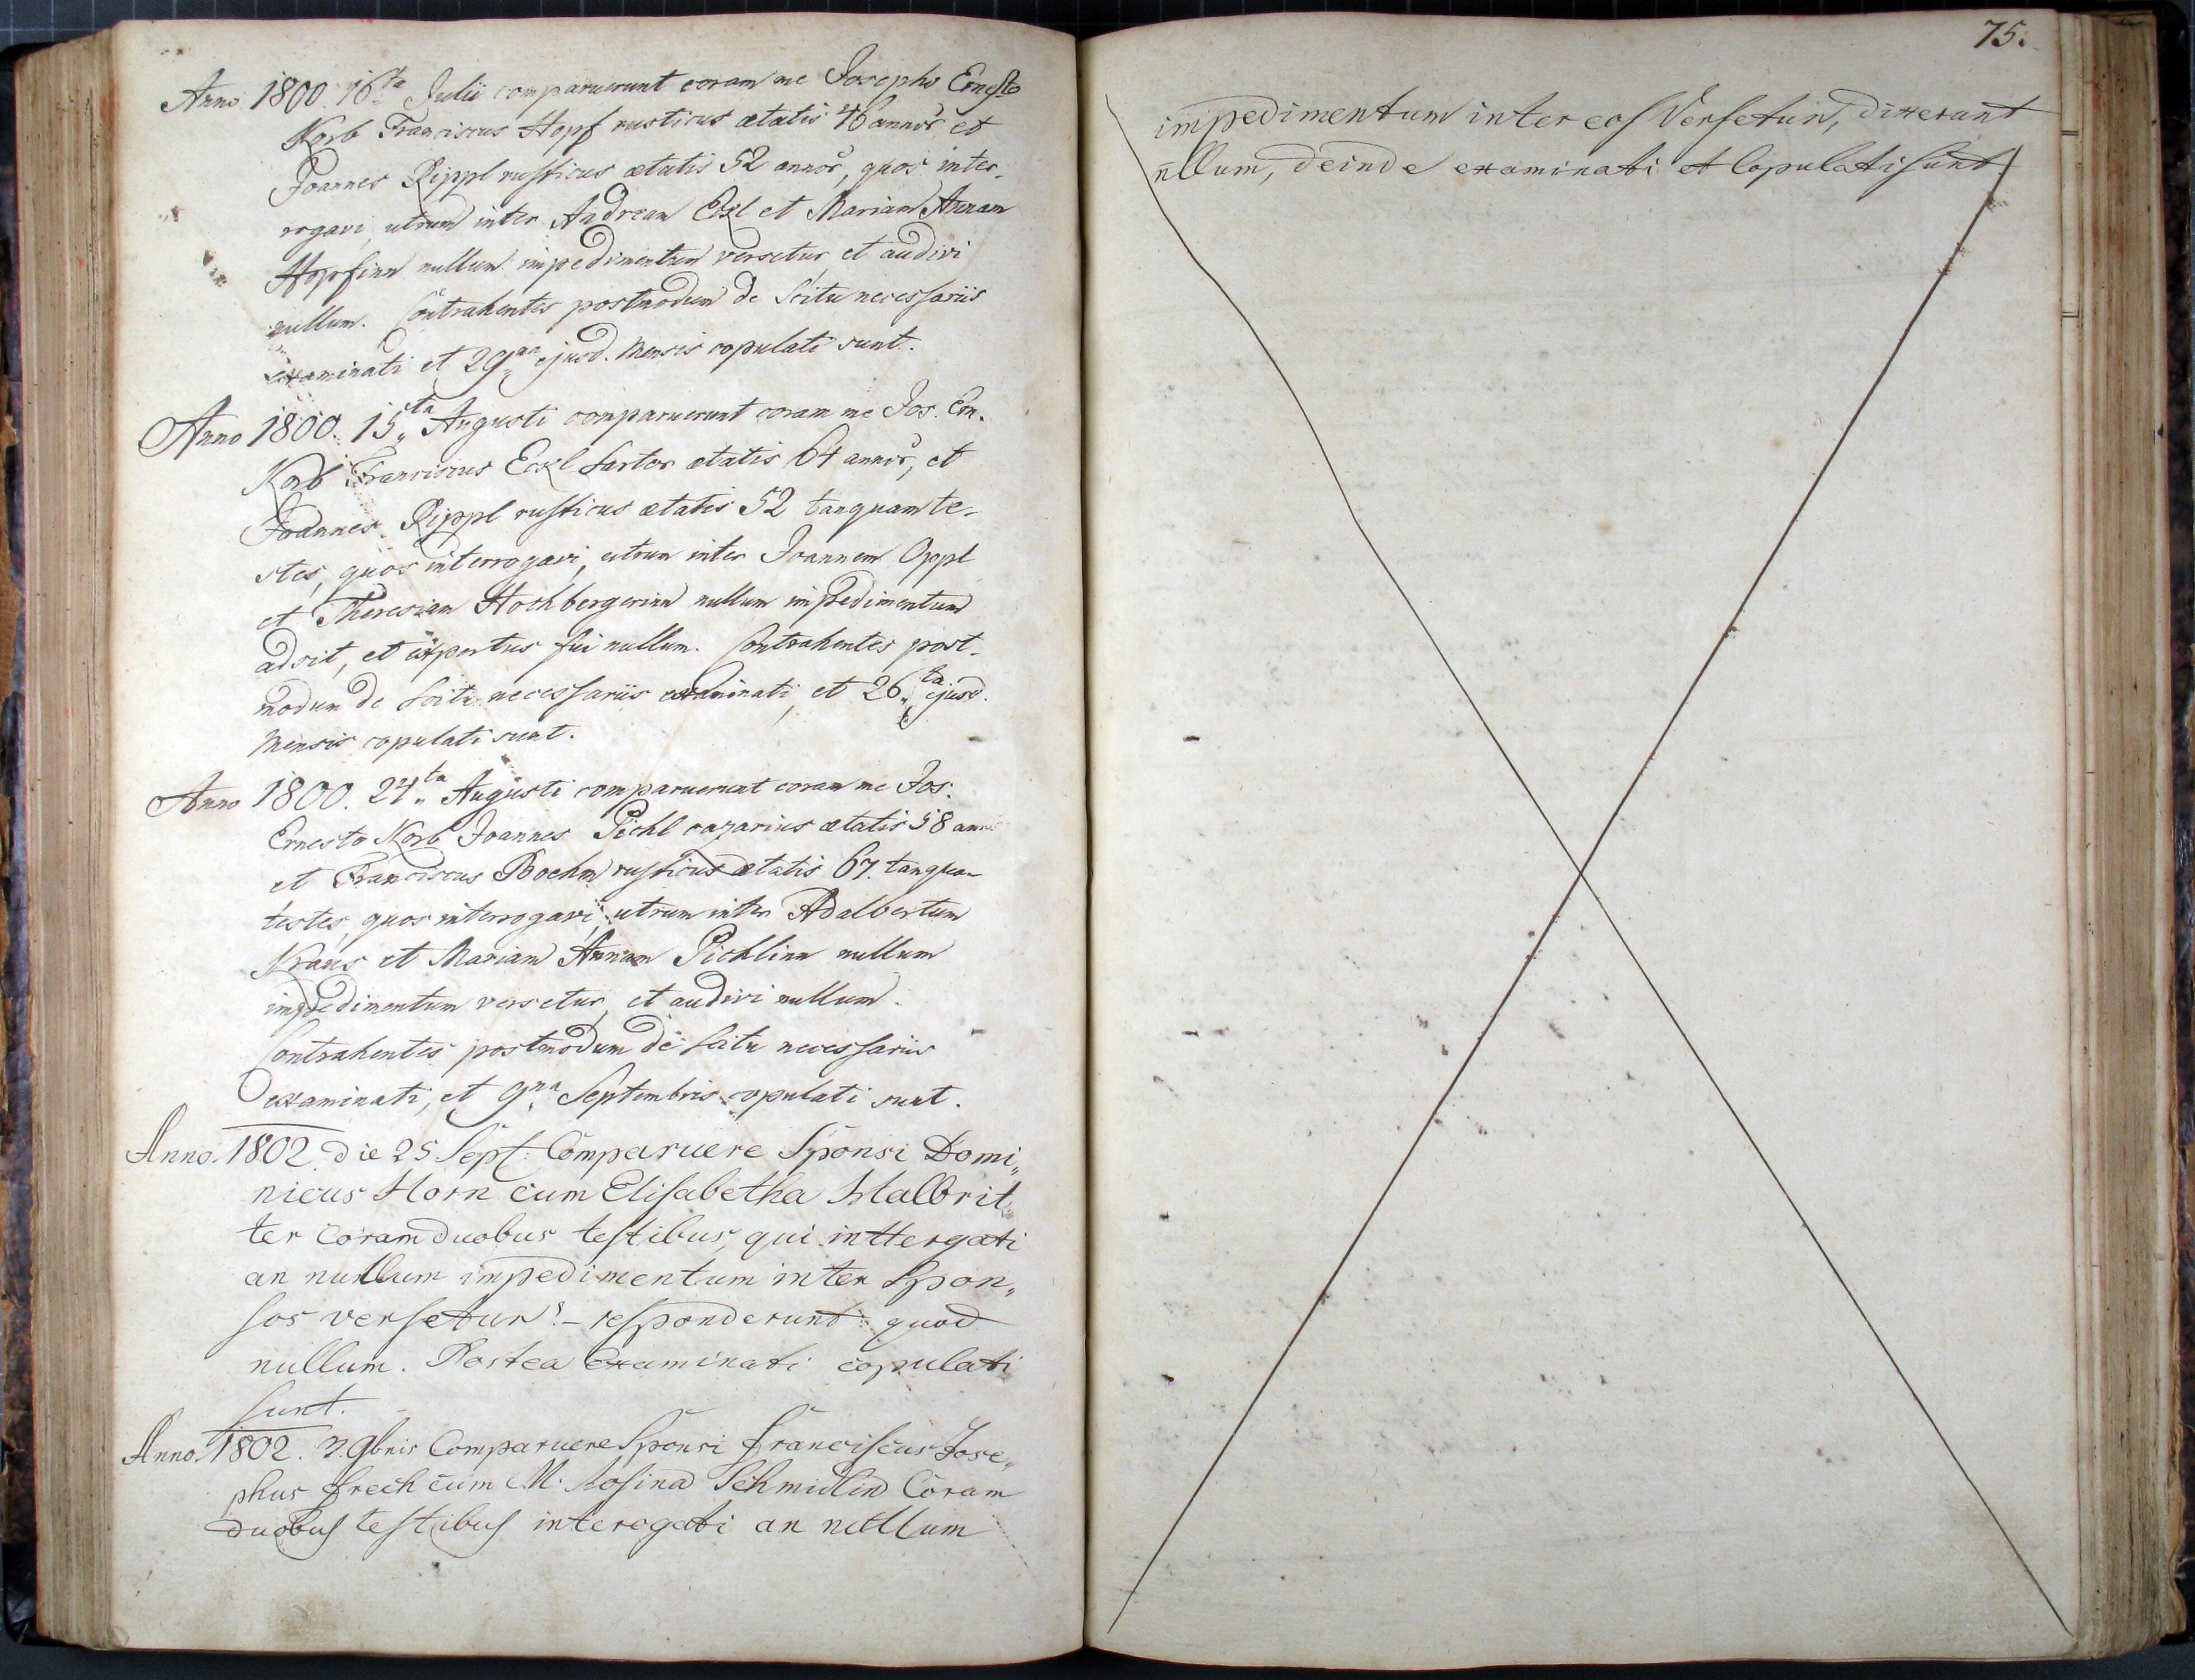 Anno 1800. 16ta Julii comparuerunt coram me Josepho Ernesto
Korb Franciscus Hopf rusticus ætatis 46 annor̄, et
Joannes Rippl rusticus ætatis 52 annor̄, quos inter-
rogavi, utrum inter Andream Eckl et Mariam Annam
Hopfinn nullum impedimentum versetur et audivi
nullum. Contrahentes postmodum de Scitu necessariis
examinati et 29na ejusd. Mensis copulati sunt.
Anno 1800. 15ta Augusti comparuerunt coram me Jos. Ern.
Korb Franciscus Eckl Sartor ætatis 64 annor̄, et
Joannes Rippl rusticus ætatis 52 tanquam te-
stes, quos interrogavi, utrum inter Joannem Oppl
et Theresiam Hochbergerinn nullum impedimentum
adsit, et expertus fui nullum. Contrahentes post-
modum de Scitu necessariis examinati, et 26ta ejusd.
Mensis copulati sunt.
Anno 1800. 24ta Augusti comparuerunt coram me Jos.
Ernesto Korb Joannes Pichl cazarius ætatis 58 annor̄
et Franciscus Boehm rusticus ætatis 67. tanquam
testes, quos interrogavi, utrum inter Adalbertum
Kraus et Mariam Annam Pichlinn nullum
impedimentum versetur, et audivi nullum.
Contrahentes postmodum de Scitu necessariis
examinati, et 9na Septembris copulati sunt.
Anno 1802. die 25 Sept: Comparuere Sponsi Domi„
nicus Horn cum Elisabetha Malbrit„
ter Coram duobus testibus, qui inttergati
an nullum impedimentum inter Spon„
sos versetur? – responderunt quod
nullum. Postea Examinati copulati
sunt.
Anno 1802. 7. 9bris Comparuere Sponsi Franciscus Jose„
phus Frech cum M. Rosina Schmidlin Coram
duobus testibus interogati an nullum
75.
impedimentum inter eos Versetur, dixerunt
nllum, deinde examinati et Copulati sunt.